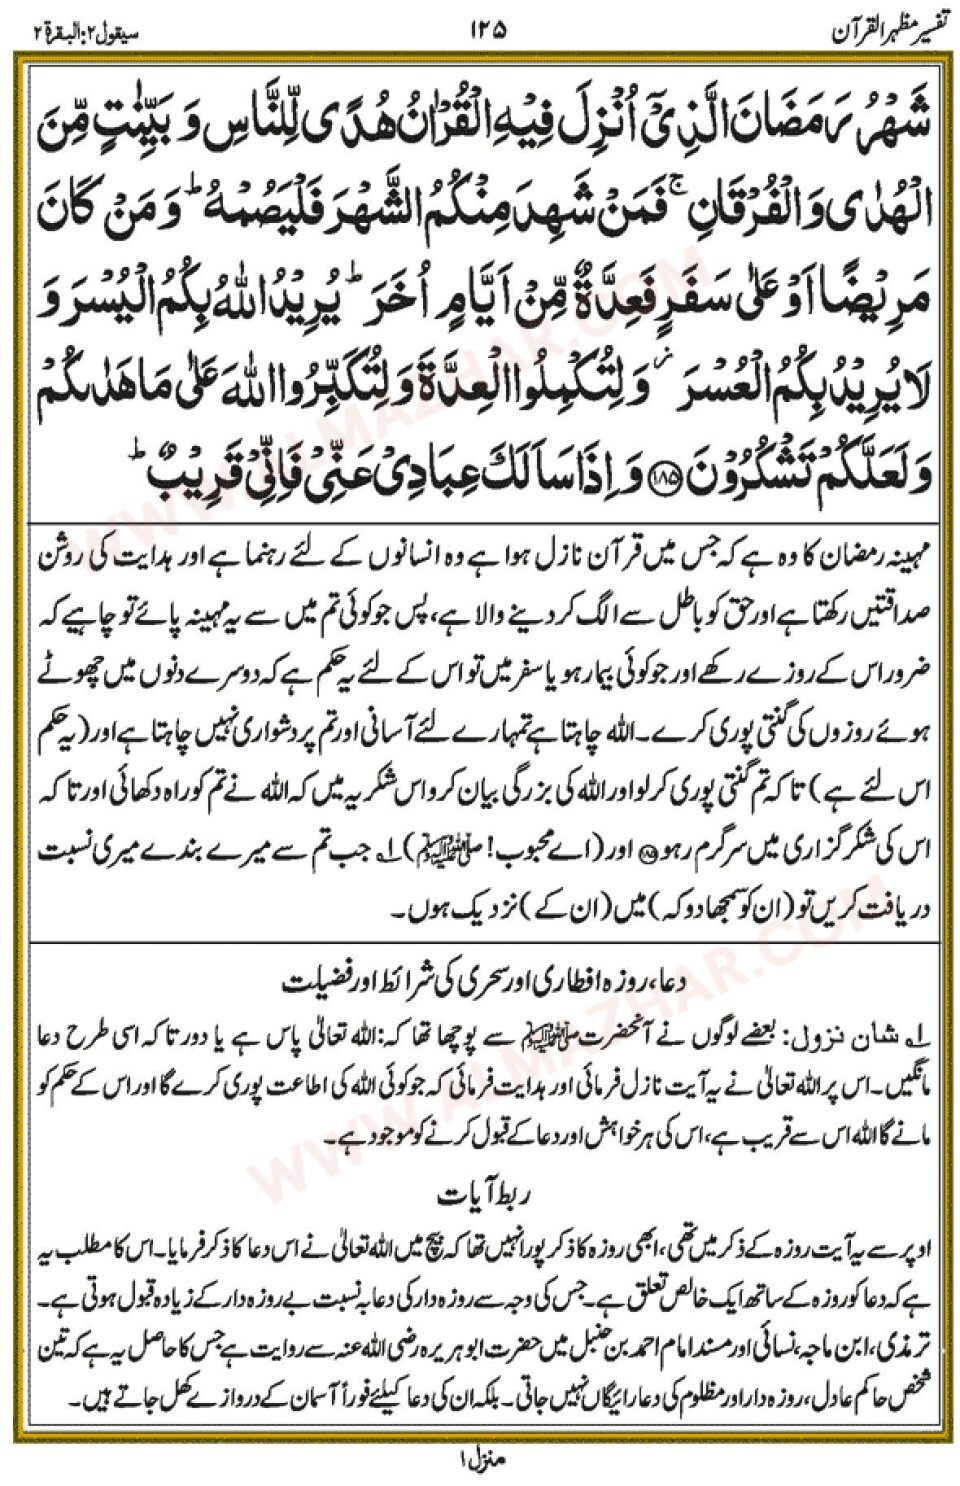 تفسیر مظہرالقرآن
۱۲۵
سیقول۲: البقرة۲
شَهْرُ رَمَضَانَ الَّذِیْۤ اُنْزِلَ فِیْهِ الْقُرْاٰنُ هُدًی لِّلنَّاسِ وَ بَیِّنٰتٍ مِّنَ
الْهُدٰی وَ الْفُرْقَانِ ۚ فَمَنْ شَهِدَ مِنْكُمُ الشَّهْرَ فَلْیَصُمْهُ ؕ وَ مَنْ كَانَ
مَرِیْضًا اَوْ عَلٰی سَفَرٍ فَعِدَّةٌ مِّنْ اَیَّامٍ اُخَرَ ؕ یُرِیْدُ اللّٰهُ بِكُمُ الْیُسْرَ وَ
لَا یُرِیْدُ بِكُمُ الْعُسْرَ ؗ وَ لِتُكْمِلُوا الْعِدَّةَ وَ لِتُكَبِّرُوا اللّٰهَ عَلٰی مَا هَدٰىكُمْ
وَ لَعَلَّكُمْ تَشْكُرُوْنَ ﴿۱۸۵﴾ وَ اِذَا سَاَلَكَ عِبَادِیْ عَنِّیْ فَاِنِّیْ قَرِیْبٌ ؕ
مہینہ رمضان کا وہ ہے کہ جس میں قرآن نازل ہوا ہے وہ انسانوں کے لئے رہنما ہے اور ہدایت کی روشن
صداقتیں رکھتا ہے اور حق کو باطل سے الگ کر دینے والا ہے، پس جو کوئی تم میں سے یہ مہینہ پائے تو چاہیے کہ
ضرور اس کے روزے رکھے اور جو کوئی بیمار ہو یا سفر میں تو اس کے لئے یہ حکم ہے کہ دوسرے دنوں میں چھوٹے
ہوئے روزوں کی گنتی پوری کرے۔ اللہ چاہتا ہے تمہارے لئے آسانی اور تم پر دشواری نہیں چاہتا ہے اور (یہ حکم
اس لئے ہے) تا کہ تم گنتی پوری کرلو اور اللہ کی بزرگی بیان کرو اس شکریہ میں کہ اللہ نے تم کو راہ دکھائی اور تا کہ
اس کی شکرگزاری میں سرگرم رہو ﴿۱۸۵﴾ اور (اے محبوب! ﷺ) ۱؎ جب تم سے میرے بندے میری نسبت
دریافت کریں تو (ان کو سمجھا دو کہ) میں (ان کے) نزدیک ہوں۔
دعا، روزہ افطاری اور سحری کی شرائط اور فضیلت
۱؎ شان نزول: بعضے لوگوں نے آنحضرت ﷺ سے پوچھا تھا کہ: اللہ تعالیٰ پاس ہے یا دور تا کہ اسی طرح دعا
مانگیں۔ اس پر اللہ تعالیٰ نے یہ آیت نازل فرمائی اور ہدایت فرمائی کہ جو کوئی اللہ کی اطاعت پوری کرے گا اور اس کے حکم کو
مانے گا اللہ اس سے قریب ہے، اس کی ہر خواہش اور دعا کے قبول کرنے کو موجود ہے۔
ربط آیات
اوپر سے یہ آیت روزہ کے ذکر میں تھی، ابھی روزہ کا ذکر پورا نہیں تھا کہ بیچ میں اللہ تعالیٰ نے اس دعا کا ذکر فرمایا۔ اس کا مطلب یہ
ہے کہ دعا کو روزہ کے ساتھ ایک خالص تعلق ہے۔ جس کی وجہ سے روزہ دار کی دعا بہ نسبت بے روزہ دار کے زیادہ قبول ہوتی ہے۔
ترمذی، ابن ماجہ، نسائی اور مسند امام احمد بن حنبل میں حضرت ابوہریرہ رضی اللہ عنہ سے روایت ہے جس کا حاصل یہ ہے کہ تین
شخص حاکم عادل، روزہ دار اور مظلوم کی دعا رائیگاں نہیں جاتی۔ بلکہ ان کی دعا کیلئے فوراً آسمان کے دروازے کھل جاتے ہیں۔
منزل۱
WWW.ALMAZHAR.COM
WWW.ALMAZHAR.COM